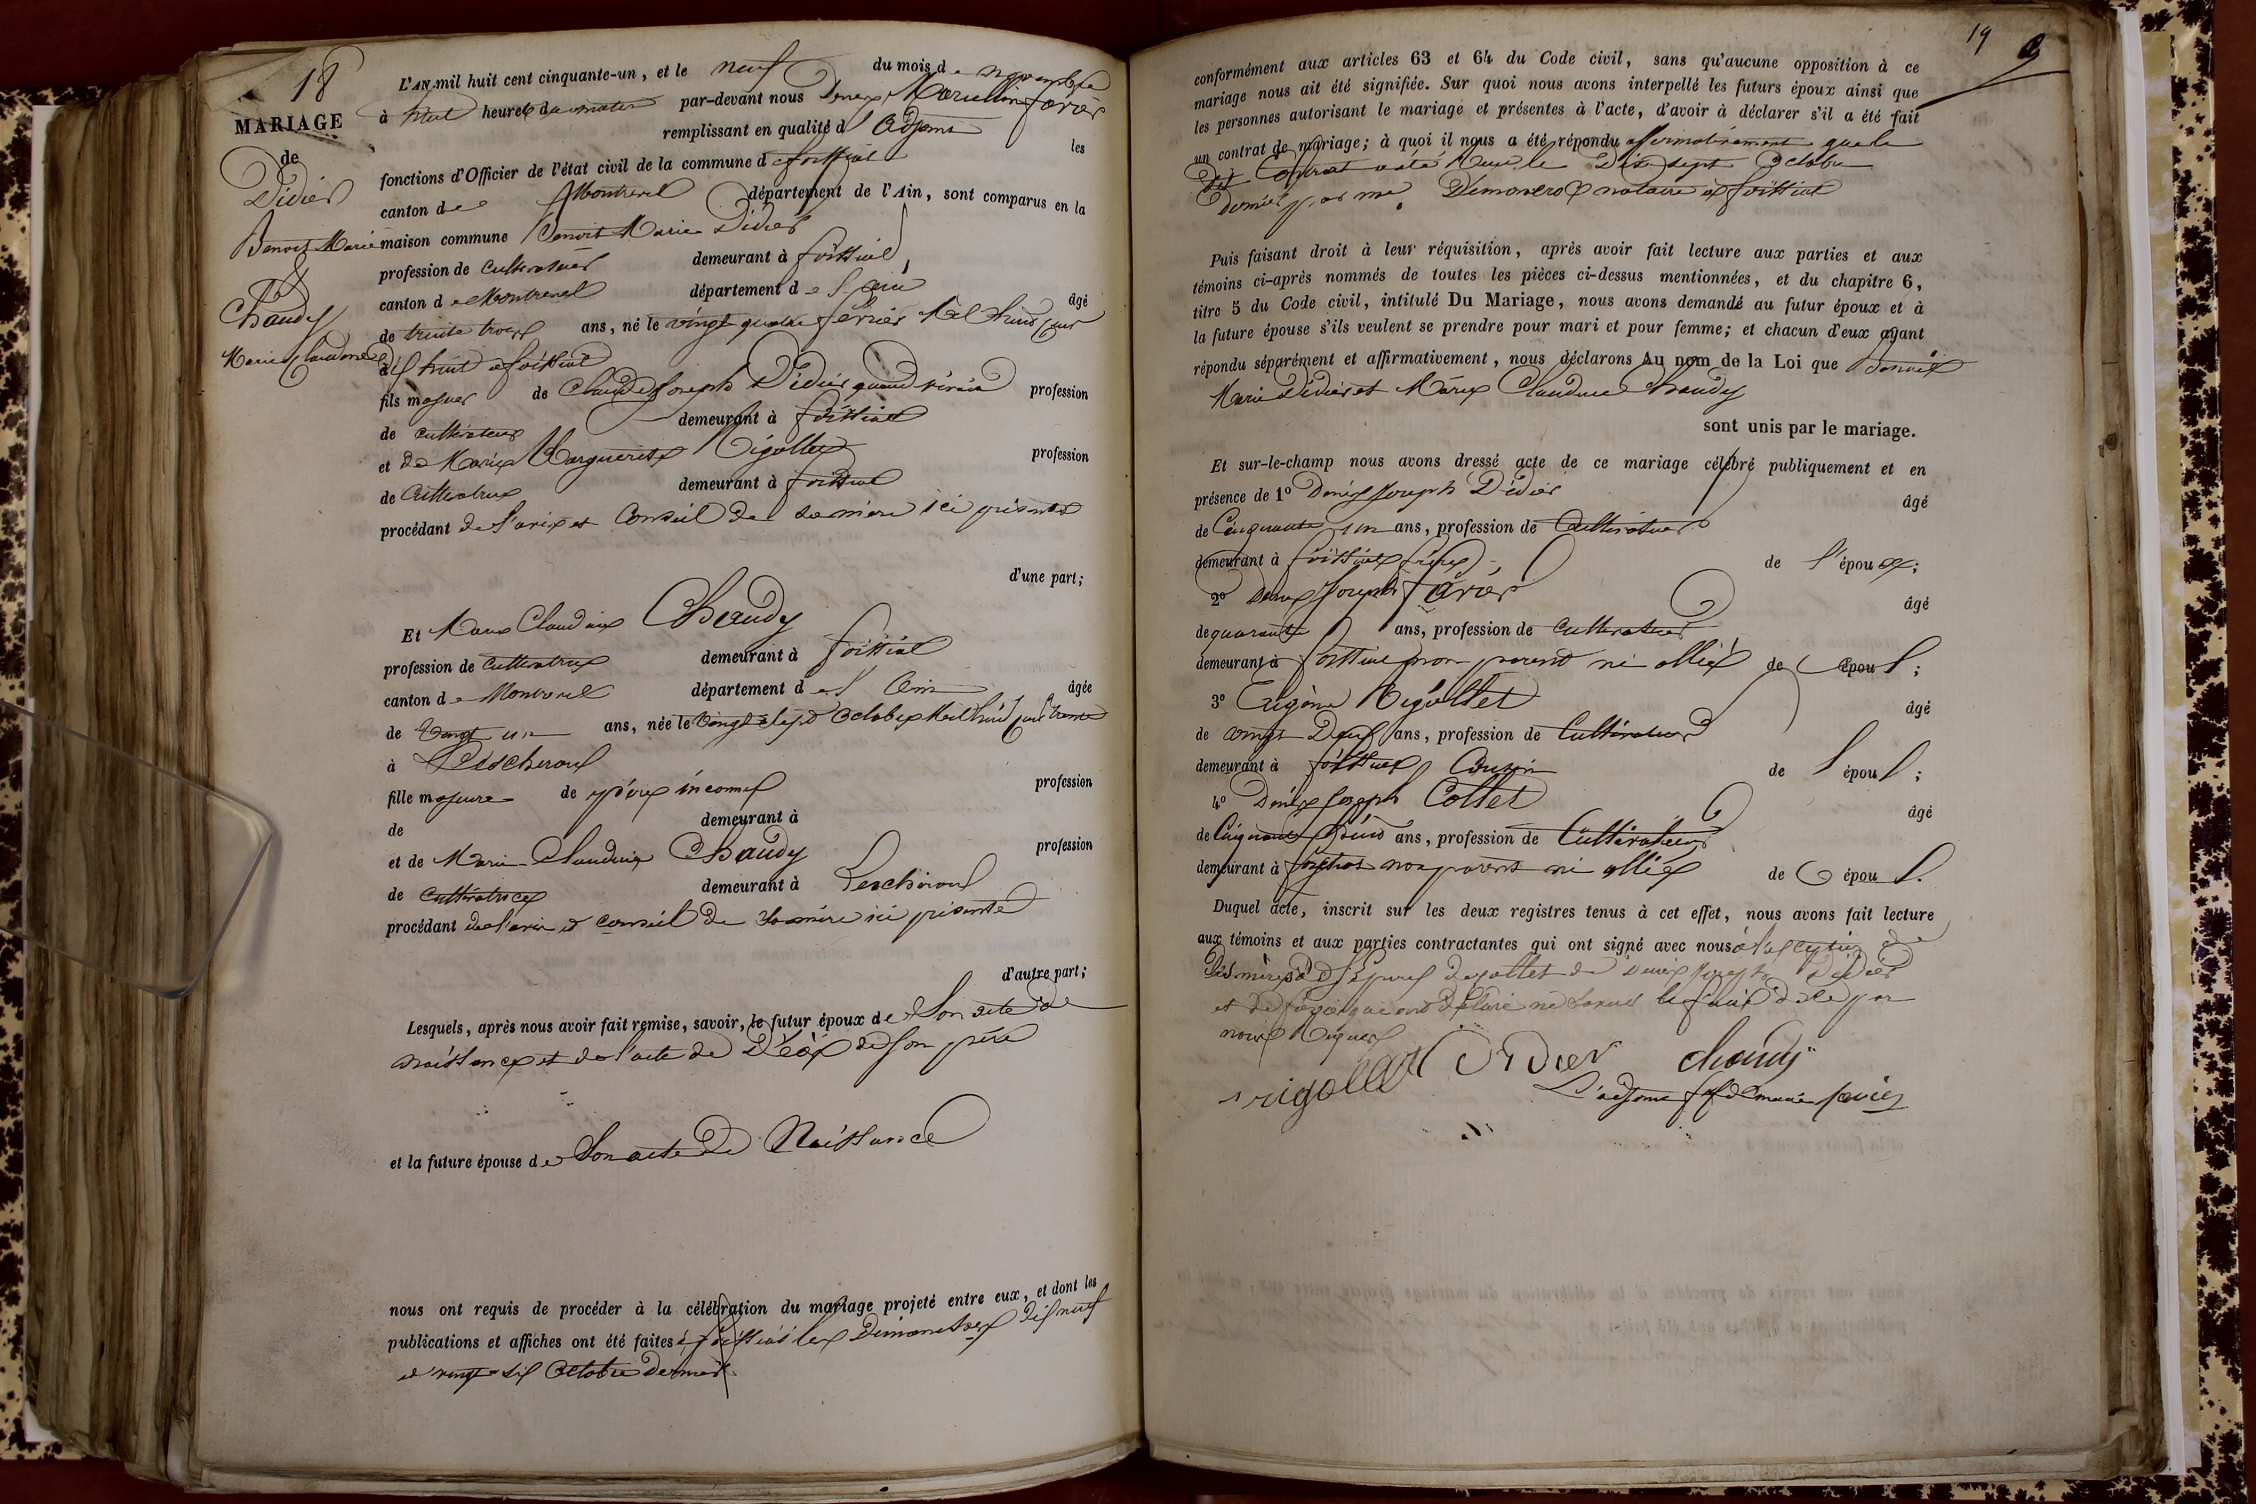 18
MARIAGE
de
Didier
Benoit Marie
&
Chaudy
Marie Claudine
L'AN mil huit cent cinquante-un, et le neuf du mois de novembre
à huit heures du matin par-devant nous Denis Marcellin favier
remplissant en qualité d'adjoint les
fonctions d'Officier de l'état civil de la commune de foissiat
canton de Montrevel département de l'Ain, sont comparus en la
maison commune Benoit Marie Didier
profession de cultivateur demeurant à foissiat
canton de Montrevel département de l'ain âgé
de trente trois ans, né le vingt quatre fevrier Mil huit cent
dix huit a foissiat
fils majeur de Claude Joseph Didier quand vivait profession
de cultivateur demeurant à foissiat
et de Marie Marguerite Rigollet profession
de Cultivatrice demeurant à foissiat
procédant de l'avis et Conseil de sa mère ici présente
d'une part;
Et Marie Claudine Chaudy
profession de cultivatrice demeurant à foissiat
canton de Montrevel département de l'Ain âgée
de vingt un ans, née le vingt sept octobre Mil huit cent trente
à Lescheroux
fille majeure de père inconnu profession
de demeurant à
et de Marie Claudine Chaudy profession
de cultivatrice demeurant à Lescheroux
procédant de l'avis et conseil de sa mère ici présente
d'autre part;
Lesquels, après nous avoir fait remise, savoir, le futur époux de Son acte de
naissance et de l'acte de Décès de son père
et la future épouse de Son acte de Naissance
nous ont requis de procéder à la célébration du mariage projeté entre eux, et dont les
publications et affiches ont été faites à foissiat les Dimanches dix neuf
et vingt six Octobre dernier
19
conformément aux articles 63 et 64 du Code civil, sans qu'aucune opposition à ce
mariage nous ait été signifiée. Sur quoi nous avons interpellé les futurs époux ainsi que
les personnes autorisant le mariage et présentes à l'acte, d'avoir à déclarer s'il a été fait
un contrat de mariage; à quoi il nous a été répondu affirmativement que le
dit Contrat a été Reçu le Dix sept Octobre
Dernier par me notaire a foissiat
Puis faisant droit à leur réquisition, après avoir fait lecture aux parties et aux
témoins ci-après nommés de toutes les pièces ci-dessus mentionnées, et du chapitre 6,
titre 5 du Code civil, intitulé Du Mariage, nous avons demandé au futur époux et à
la future épouse s'ils veulent se prendre pour mari et pour femme; et chacun d'eux ayant
répondu séparément et affirmativement, nous déclarons Au nom de la Loi que Benoit
Marie Didier et Marie Claudine Chaudy
sont unis par le mariage.
Et sur-le-champ nous avons dressé acte de ce mariage célébré publiquement et en
présence de 1° Denis Joseph Didier âgé
de Cinquante un ans, profession de Cultivateur
demeurant à foissiat frère de l'époux;
2° Denis Joseph favier âgé
de quarante ans, profession de cultivateur
demeurant à foissiat non parent ni allié de épou ;
3° Eugène Rigollet âgé
de vingt Deux ans, profession de Cultivateur
demeurant à foissiat Cousin de l'épou ;
4° Denis Joseph Collet âgé
de Cinquante huit ans, profession de Cultivateur
demeurant à foissiat non parent ni allié de épou .
Duquel acte, inscrit sur les deux registres tenus à cet effet, nous avons fait lecture
aux témoins et aux parties contractantes qui ont signé avec nous à l'exception de
des mères des époux de Denis Joseph Didier
et de favier qui ont déclaré ne savoir le faire de ce par
nous Requis
rigollet Didier chaudy
L'adjoint favier